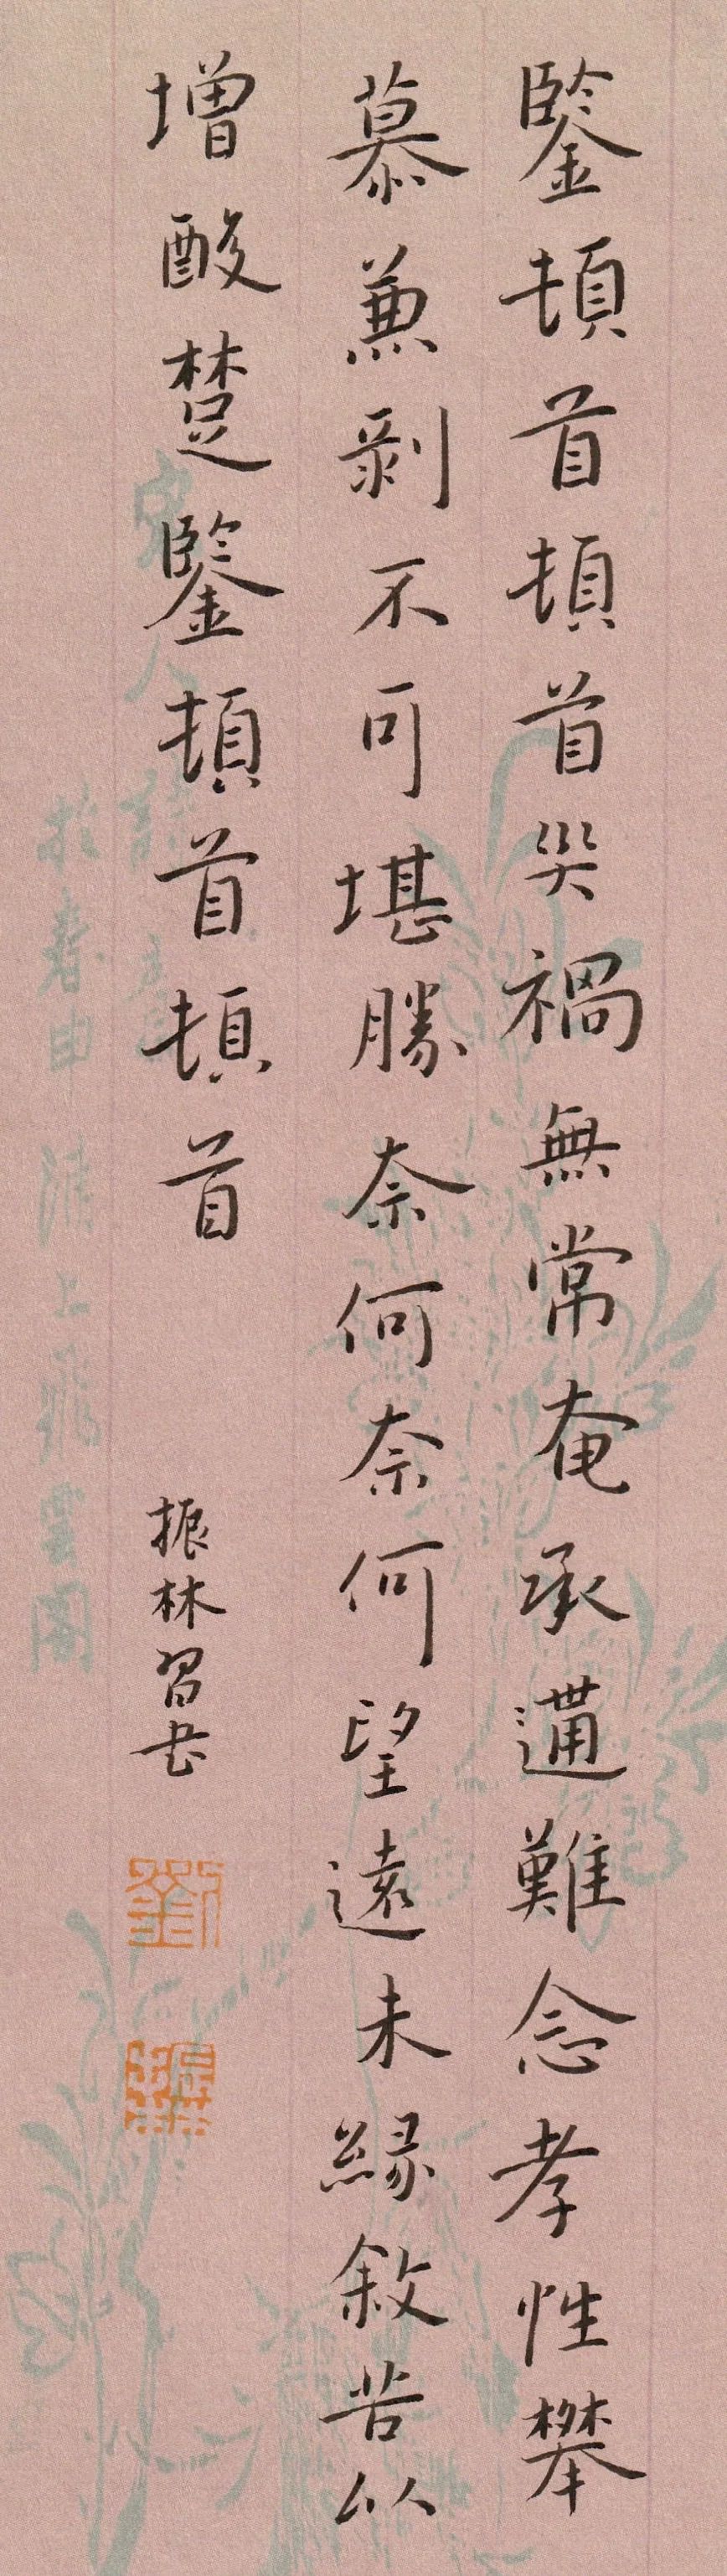 鑒頓首頓首哭禍無常奄承遘難念孝性攀
慕兼剝不可堪勝奈何奈何望遠未緣敘苦以
增酸楚鑒頓首頓首
振林習書
劉